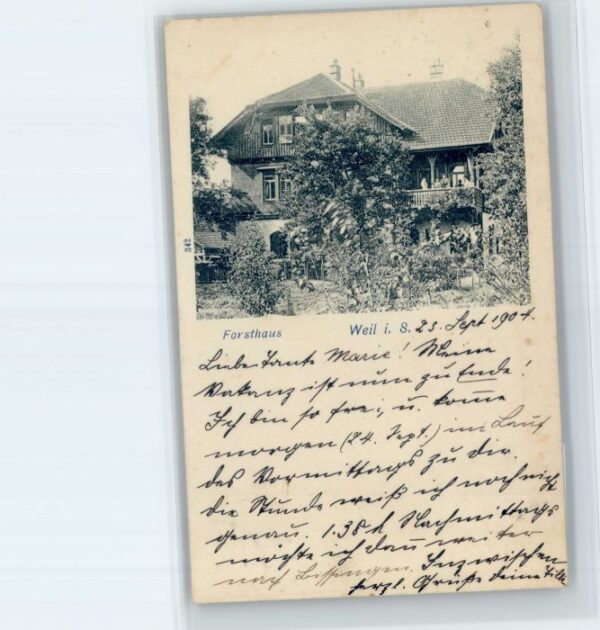 342
Forsthaus
Weil i. S. 23. Sept 1904.
Liebe Tante Marie! Meine
Vakanz ist nun zu Ende!
Ich bin so frei, u. komme
morgen (24. Sept.) im Lauf
des Vormittags zu dir.
die Stunde weiß ich noch nicht
genau. 1.38 h Nachmittags
möchte ich dann weiter
nach Bissingen. Inzwischen
herzl. Grüße deine